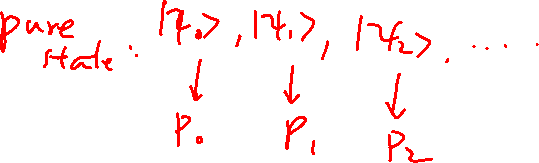 pure state: |ψ₀>, |ψ₁>, |ψ₂>, ....
↓ ↓ ↓
P₀ P₁ P₂